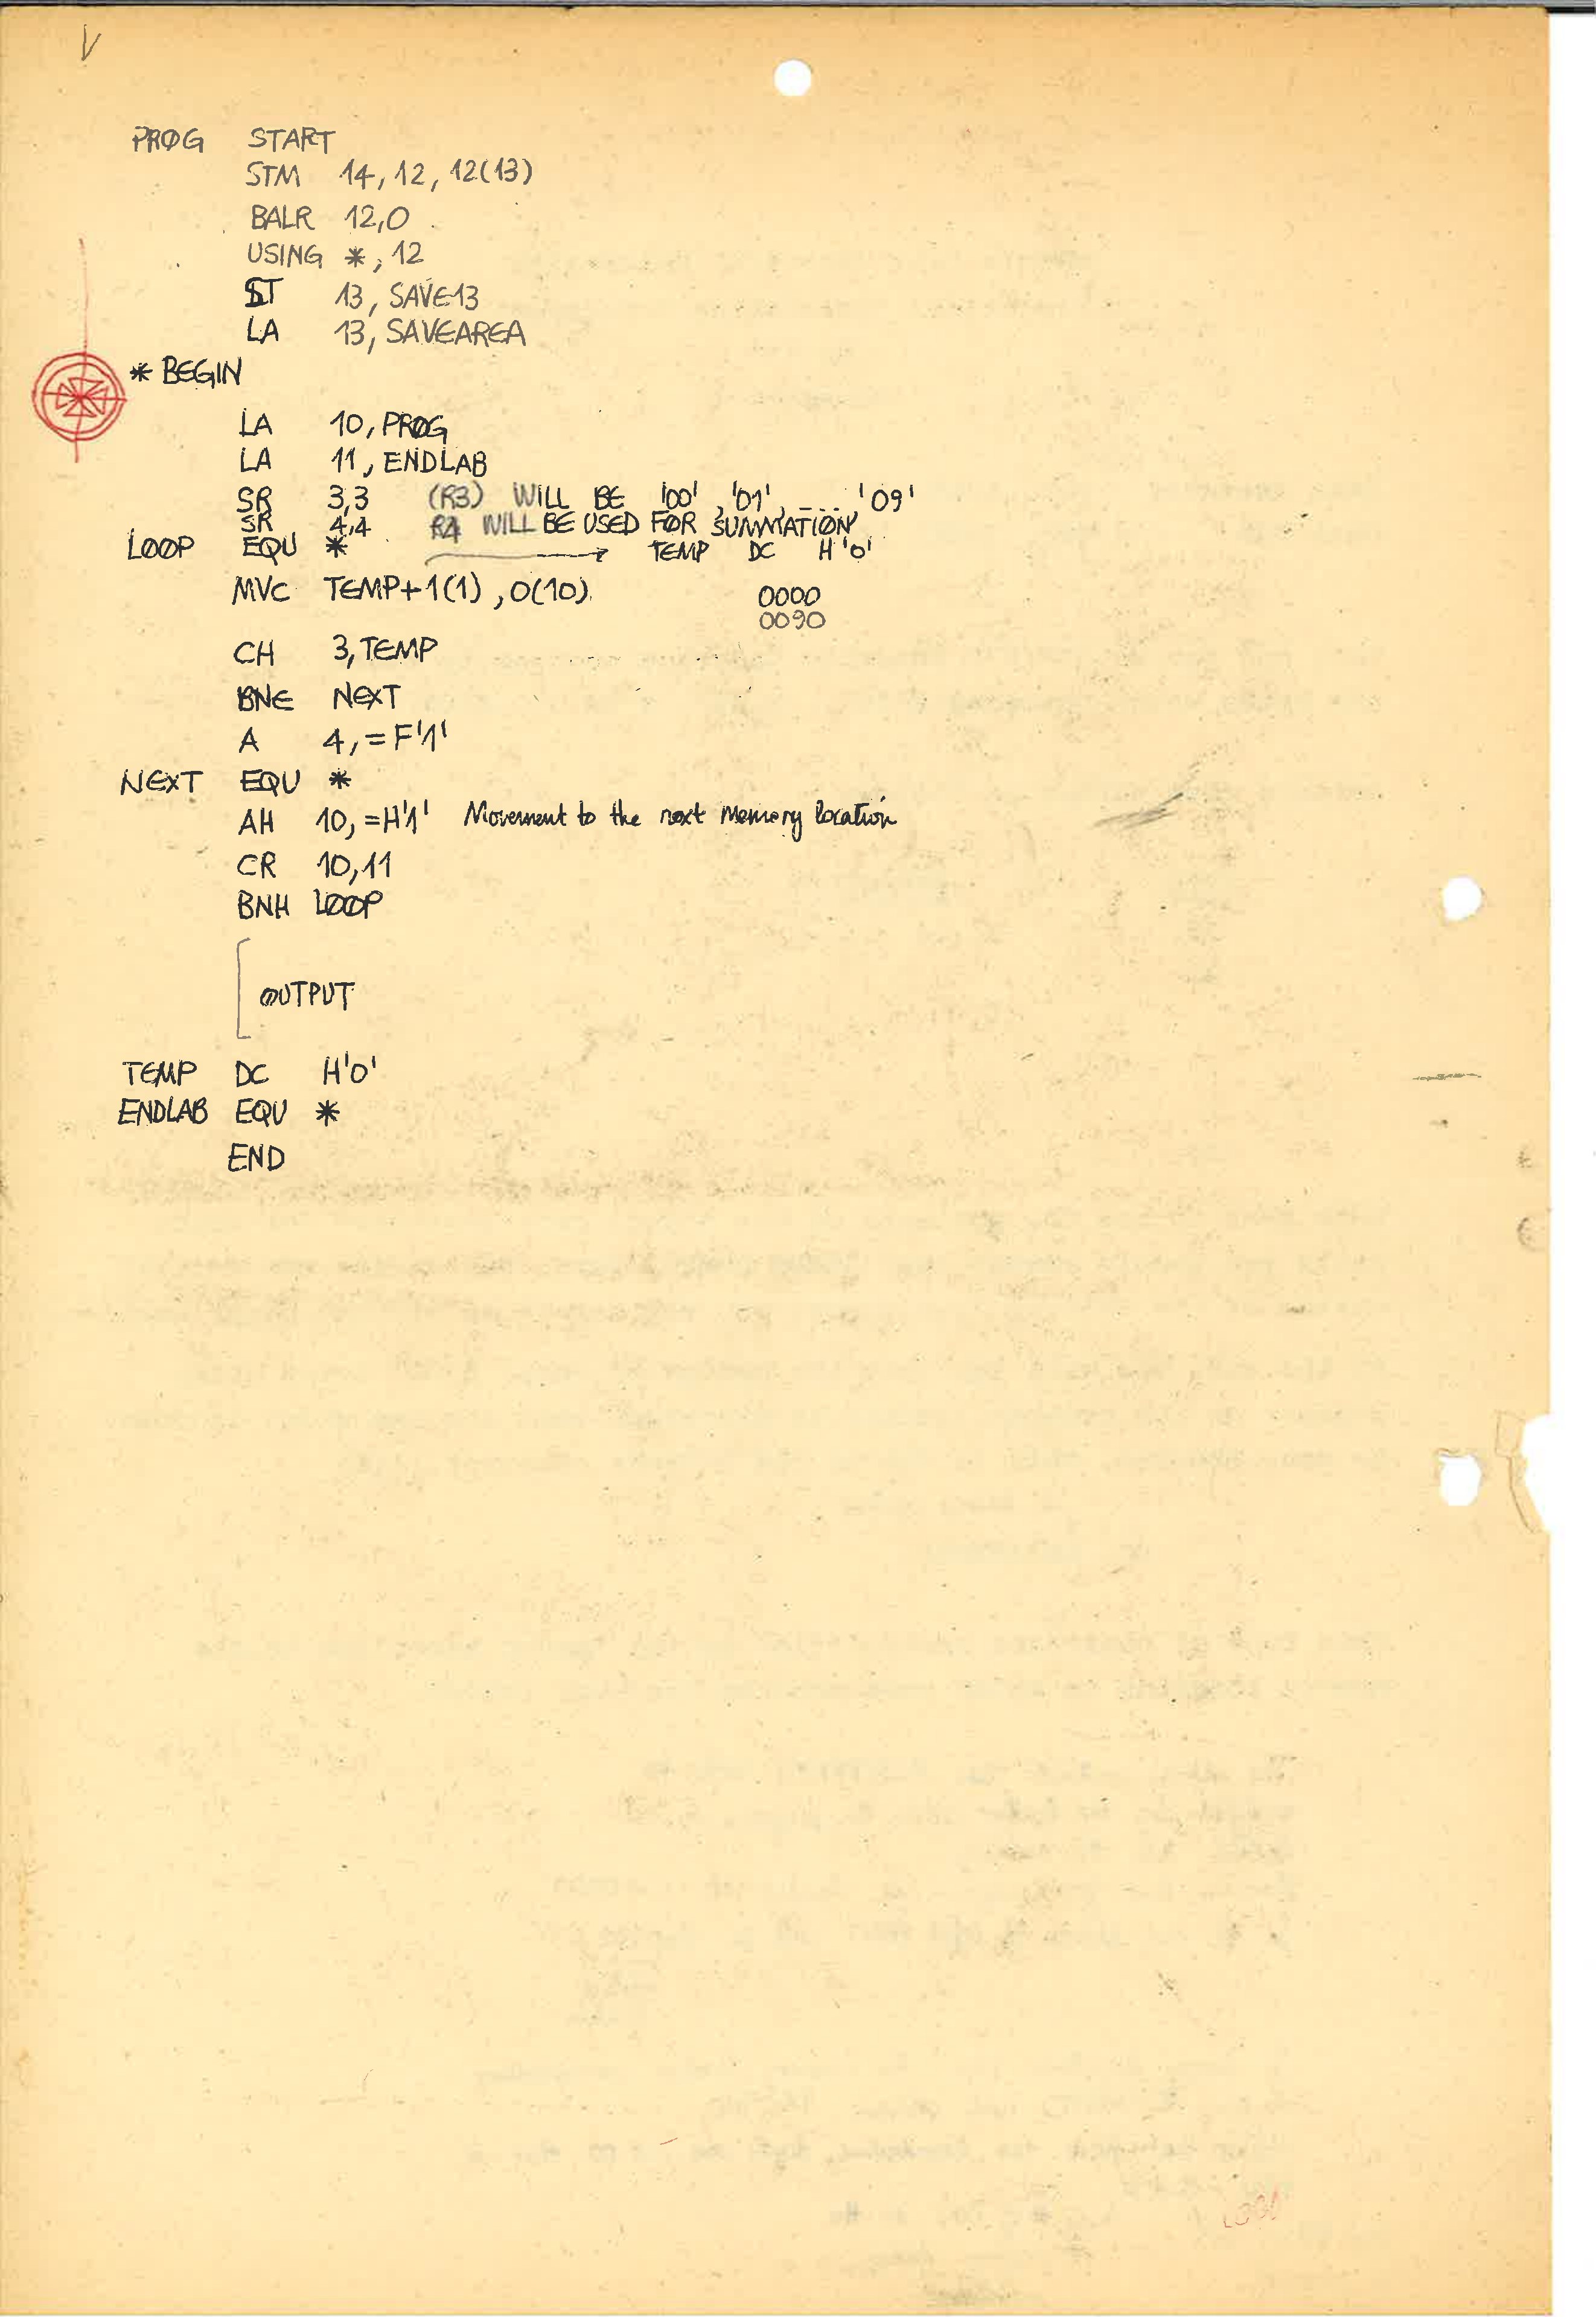 PRØG START
STM 14,12,12(13)
BALR 12,0
USING *,12
ST 13,SAVE13
LA 13,SAVEAREA
* BEGIN
LA 10,PRØG
LA 11,ENDLAB
SR 3,3 (R3) WILL BE '00','01',....'09'
SR 4,4 R4 WILL BE USED FOR SUMMATION
LØØP EQU * TEMP DC H'0'
MVC TEMP+1(1),0(10) 0000
0090
CH 3,TEMP
BNE NEXT
A 4,=F'1'
NEXT EQU *
AH 10,=H'1' Movement to the next Memory location
CR 10,11
BNH LØØP
ØUTPUT
TEMP DC H'0'
ENDLAB EQU *
END